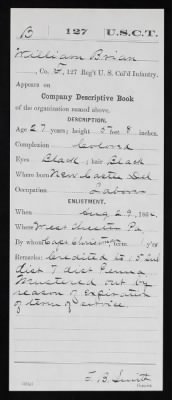 B 127 U.S.C.T.
William Brian
, Co. , 127 Reg't U. S. Col'd Infantry.
Appears on
Company Descriptive Book
of the organization named above.
DESCRIPTION.
Age 27 years; height 5 feet 8 inches.
Complexion Colored
Eyes Black; hair Black
Where born New Castle Del
Occupation Laborer
ENLISTMENT.
When Aug 29, 1864.
Where West Chester Pa
By whom Capt ; term 1 y'rs
Remarks: Credited to
dist Penna.
Mustered out by
reason of expiration
of term of service
Smith